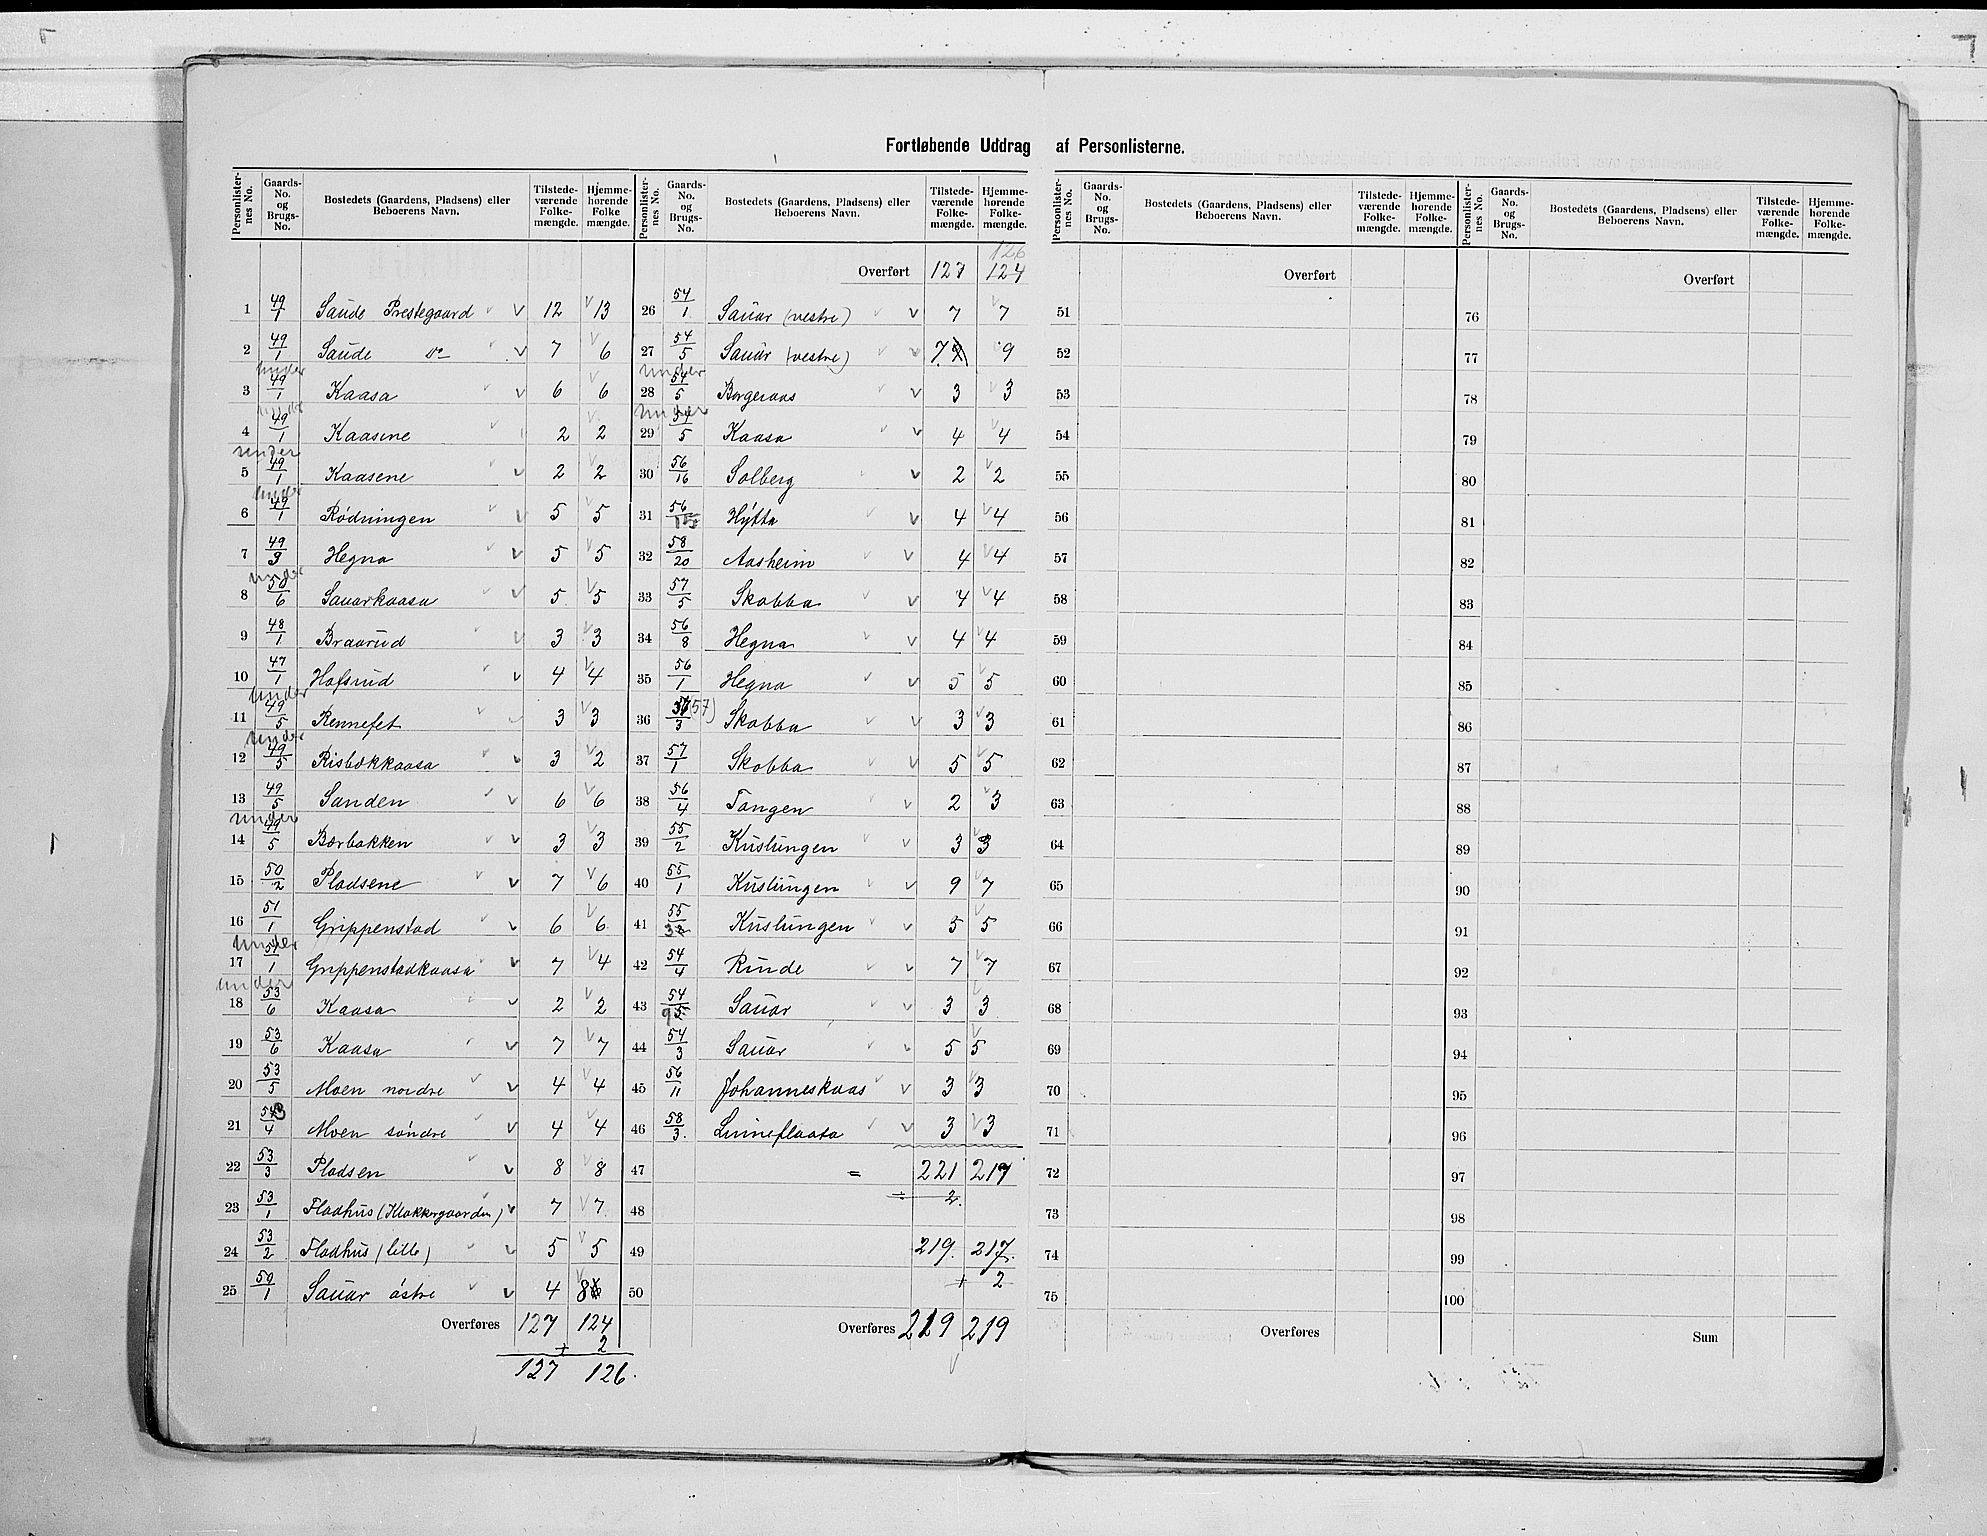 Fortløbende Uddrag af Personlisterne.
Personlister-nes No. Gaards-No. og Brugs-No. Bostedets (Gaardens, Pladsens) eller Beboerens Navn. Tilstede-værende Folke-mængde. Hjemme-hørende Folke-mængde.
1 49/1 Saude Prestegaard 12 13
2 49/1 Saude do 7 6
3 under 49/1 Kaasa 6 6
4 under 49/1 Kaasene 2 2
5 under 49/1 Kaasene 2 2
6 under 49/1 Rødningen 5 5
7 49/3 Hegna 5 5
8 under 50/6 Sauarkaasa 5 5
9 48/1 Braarud 3 3
10 47/1 Hofsrud 4 4
11 under 49/5 Rennefet 3 3
12 under 49/5 Risbækkaasa 3 2
13 49/5 Sanden 6 6
14 under 49/5 Bærbakken 3 3
15 50/2 Pladsene 7 6
16 51/1 Grippenstad 6 6
17 under 51/1 Grippenstadkaasa 7 4
18 under 53/6 Kaasa 2 2
19 53/6 Kaasa 7 7
20 53/5 Moen nordre 4 4
21 53/4 Moen søndre 4 4
22 53/3 Pladsen 8 8
23 53/1 Fladhus (Klokkergaarden) 7 7
24 53/2 Fladhus (lille) 5 5
25 50/1 Sauar østre 4 8
Overføres 127 124
+ 2
127 126.
Personlister-nes No. Gaards-No. og Brugs-No. Bostedets (Gaardens, Pladsens) eller Beboerens Navn. Tilstede-værende Folke-mængde. Hjemme-hørende Folke-mængde.
126
Overført 127 124
26 54/1 Sauar (vestre) 7 7
27 54/5 Sauar (vestre) 7 9
28 under 54/5 Borgeraas 3 3
29 under 54/5 Kaasa 4 4
30 56/16 Solberg 2 2
31 56/15 Hytta 4 4
32 58/20 Aasheim 4 4
33 57/5 Skobba 4 4
34 56/8 Hegna 4 4
35 56/1 Hegna 5 5
36 (57)/3 Skobba 3 3
37 57/1 Skobba 5 5
38 56/4 Tangen 2 3
39 55/2 Kuslungen 3 3
40 55/1 Kuslungen 9 7
41 55/3 Kuslungen 5 5
42 54/4 Rinde 7 7
43 54/5 Sauar 3 3
44 54/3 Sauar 5 5
45 56/11 Johanneskaas 3 3
46 58/3. Linneflaata 3 3
47 = 221 217
÷ 2.
48
49 219. 217.
+ 2
50
Overføres 219 219
Personlister-nes No. Gaards-No. og Brugs-No. Bostedets (Gaardens, Pladsens) eller Beboerens Navn. Tilstede-værende Folke-mængde. Hjemme-hørende Folke-mængde.
Overført
51
52
53
54
55
56
57
58
59
60
61
62
63
64
65
66
67
68
69
70
71
72
73
74
75
Overføres
Personlister-nes No. Gaards-No. og Brugs-No. Bostedets (Gaardens, Pladsens) eller Beboerens Navn. Tilstede-værende Folke-mængde. Hjemme-hørende Folke-mængde.
Overført
76
77
78
79
80
81
82
83
84
85
86
87
88
89
90
91
92
93
94
95
96
97
98
99
100
Sum